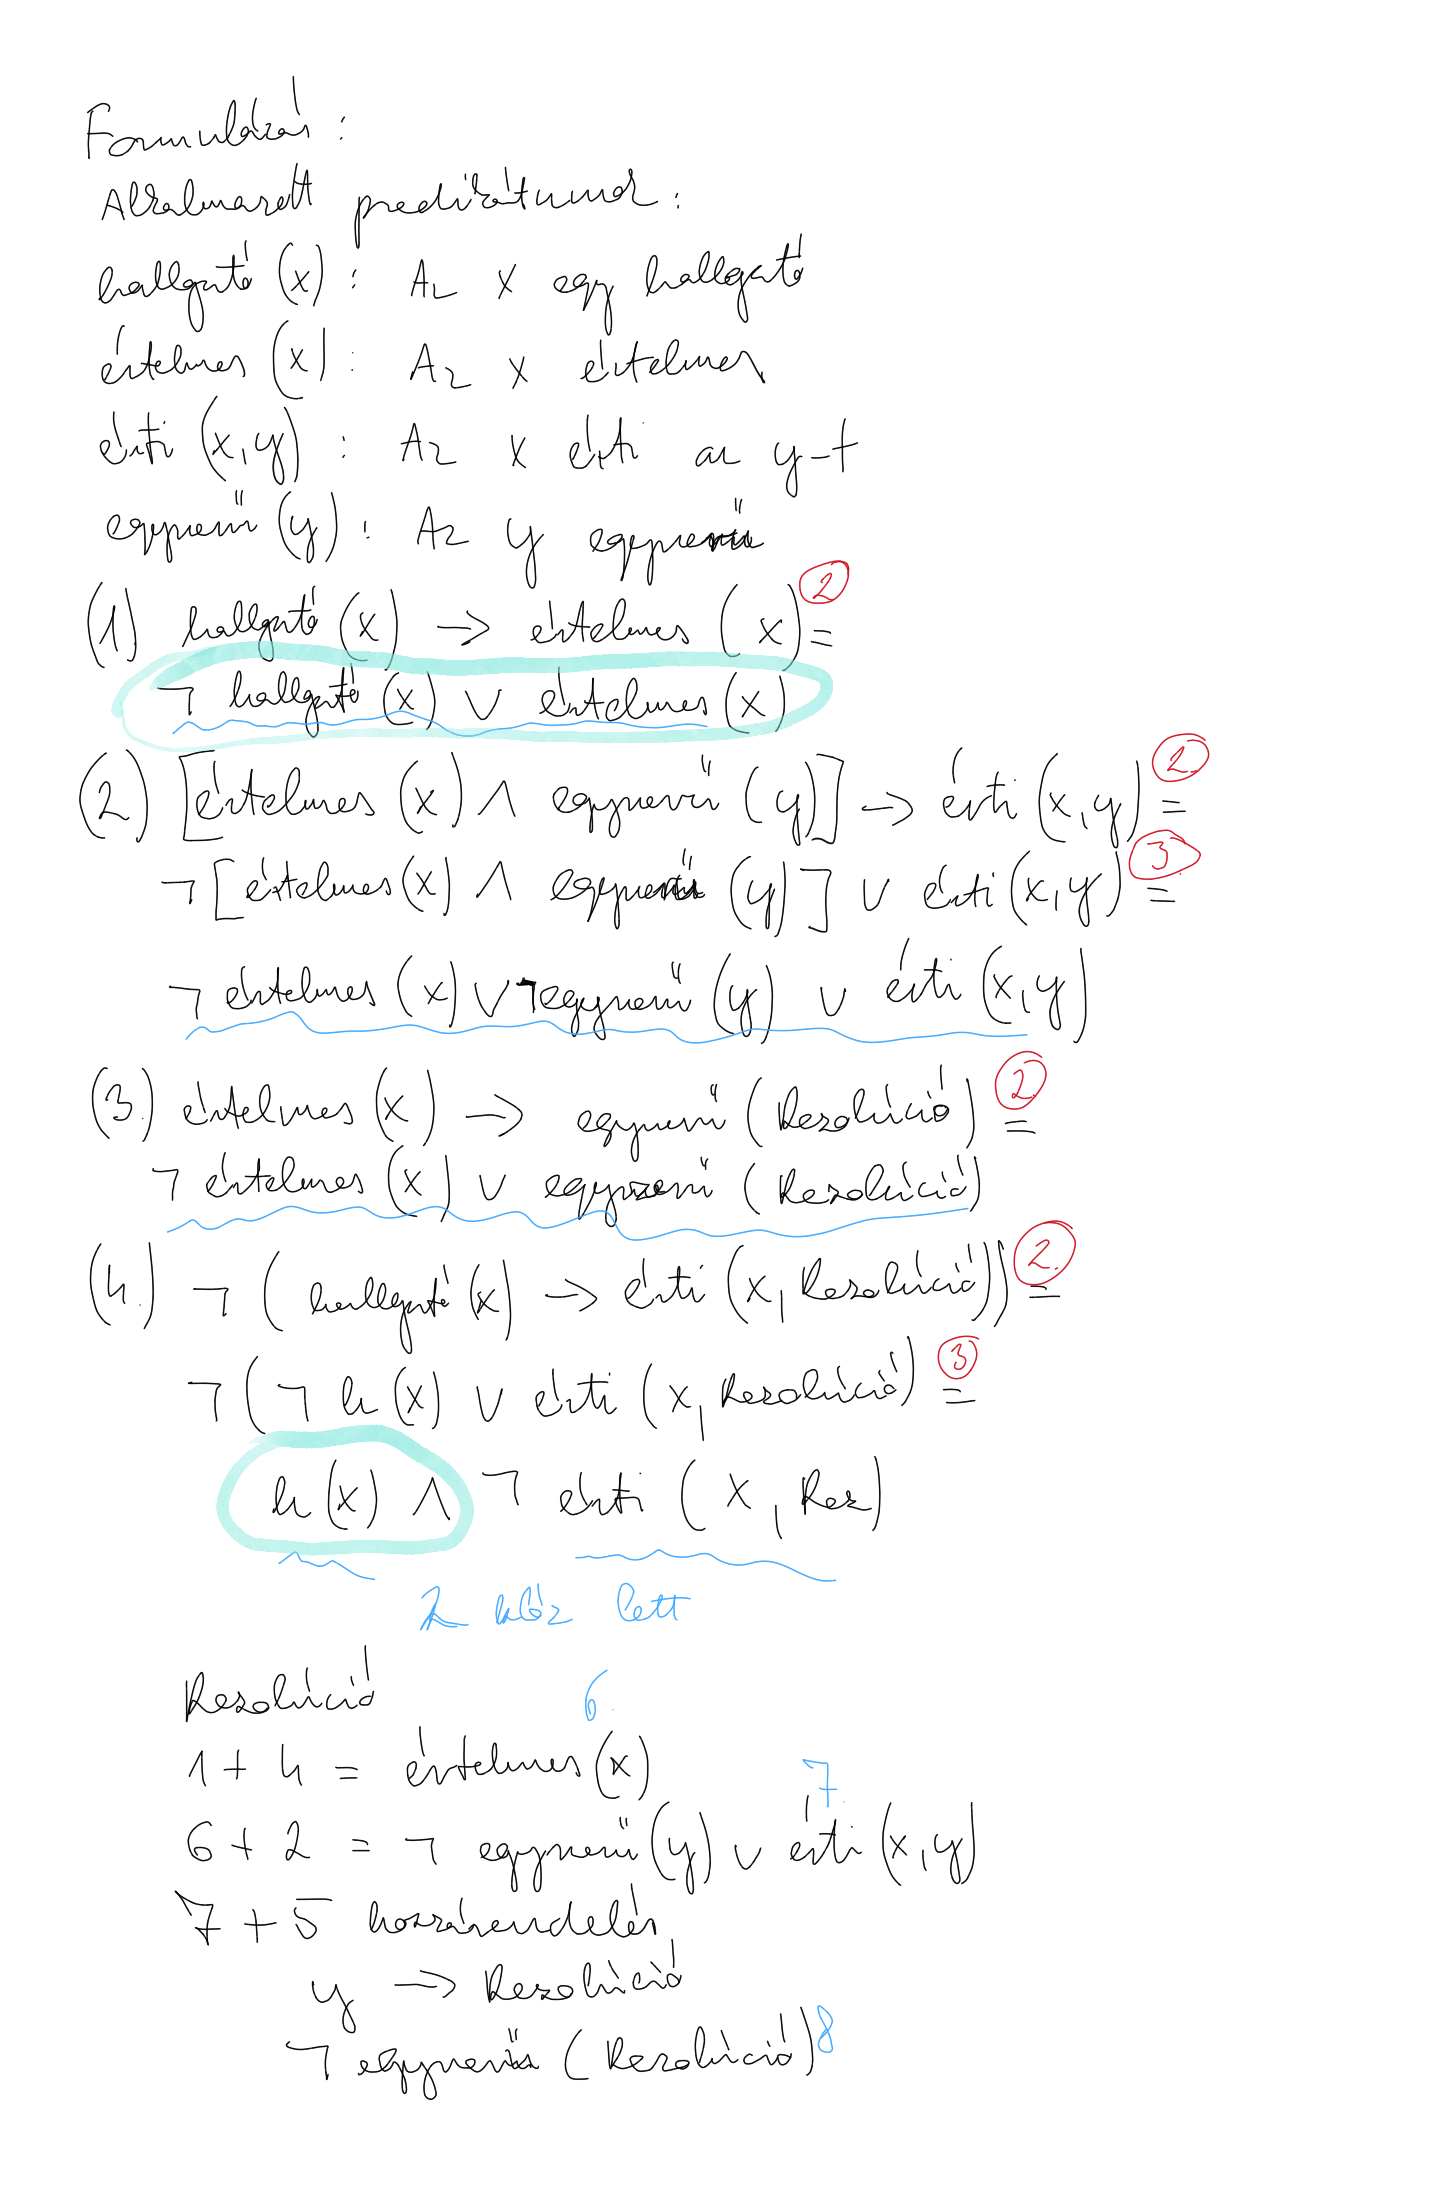 Formulázás:
Alkalmazott predikátumok:
hallgató (x): Az x egy hallgató
értelmes (x): Az x értelmes
érti (x,y): Az x érti az y-t
egyszerű (y): Az y egyszerű
(1) hallgató (x) → értelmes (x) = ②
¬ hallgató (x) ∨ értelmes (x)
(2) [értelmes (x) ∧ egyszerű (y)] → érti (x,y) = ②
¬ [értelmes (x) ∧ egyszerű (y)] ∨ érti (x,y) = ③
¬ értelmes (x) ∨ ¬ egyszerű (y) ∨ érti (x,y)
(3.) értelmes (x) → egyszerű (Rezolúció) = ②
¬ értelmes (x) ∨ egyszerű (Rezolúció)
(4.) ¬ ( hallgató (x) → érti (x, Rezolúció)) = ②
¬ (¬ h (x) ∨ érti (x, Rezolúció) = ③
h (x) ∧ ¬ érti (x, Rez)
2 klóz lett
Rezolúció
1 + 4 = értelmes (x) 6.
6 + 2 = ¬ egyszerű (y) ∨ érti (x,y) 7.
7 + 5 hozzárendelés
y → Rezolúció
¬ egyszerű (Rezolúció) 8